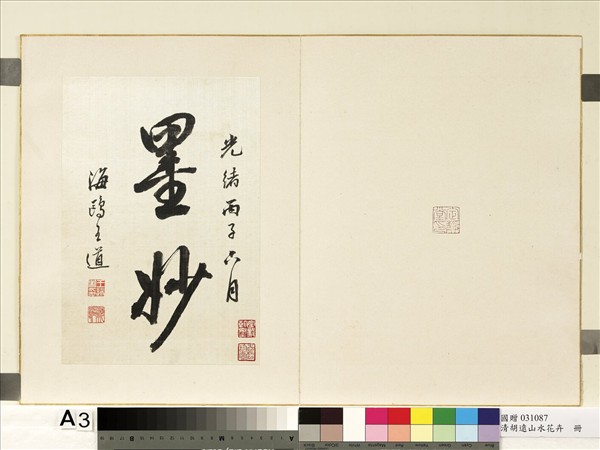 光緒丙子六月
墨妙
海鷗王道
A3
國贈 031087
清胡遠山水花卉 冊